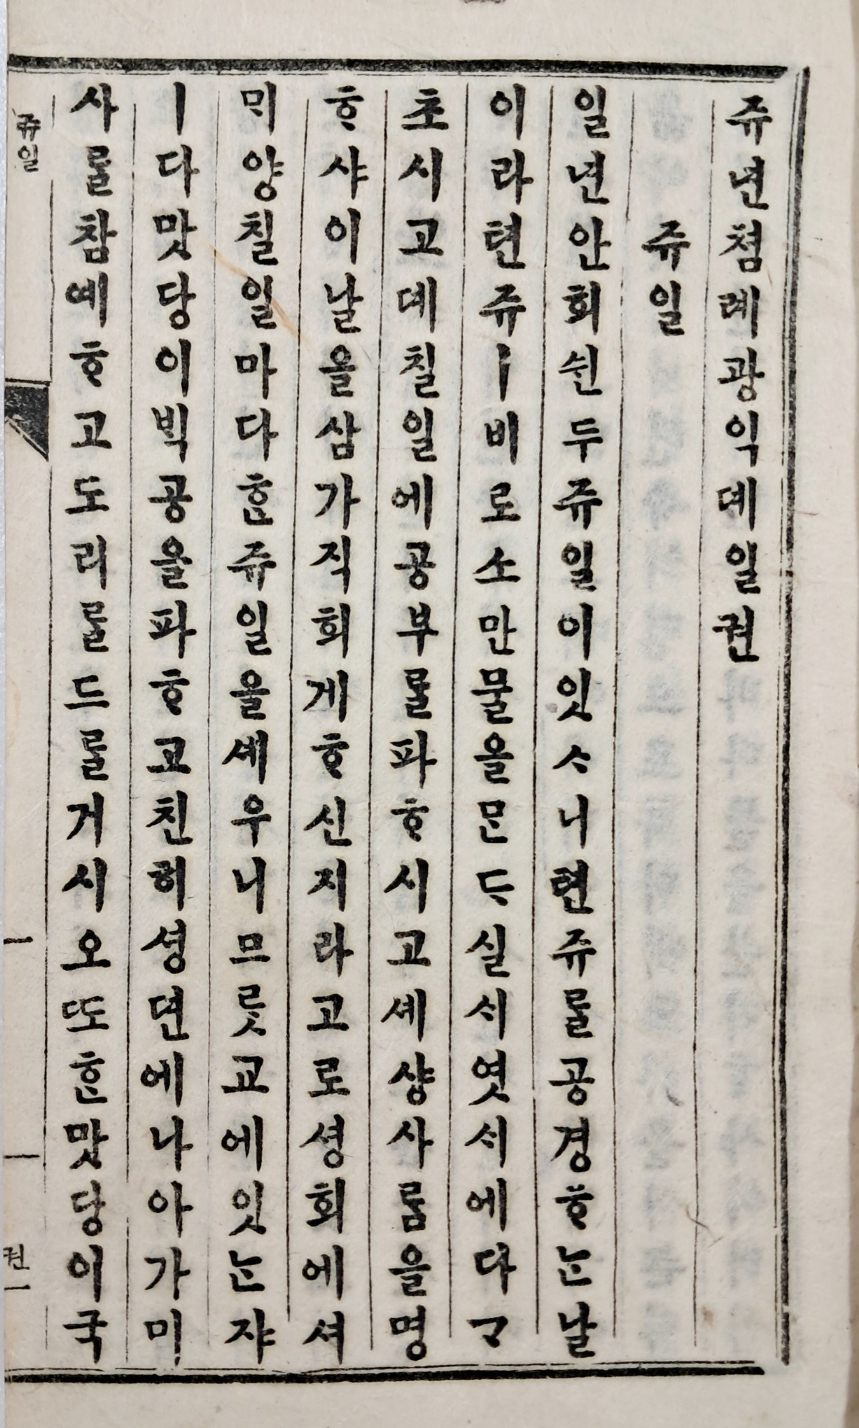 쥬년쳠례광익뎨일권
쥬일
일년안희쉰두쥬일이잇ᄉᆞ니텬쥬ᄅᆞᆯ공경ᄒᆞᄂᆞᆫ날
이라텬쥬ㅣ비로소만물을ᄆᆞᆫᄃᆞ실ᄉᆡ엿ᄉᆡ에다ᄆᆞ
초시고뎨칠일에공부ᄅᆞᆯ파ᄒᆞ시고셰샹사ᄅᆞᆷ을명
ᄒᆞ샤이날을삼가직희게ᄒᆞ신지라고로셩회에셔
ᄆᆡ양칠일마다ᄒᆞᆫ쥬일을셰우니므ᄅᆞᆺ교에잇ᄂᆞᆫ쟈
ㅣ다맛당이ᄇᆡᆨ공을파ᄒᆞ고친히셩뎐에나아가미
사ᄅᆞᆯ참예ᄒᆞ고도리ᄅᆞᆯ드ᄅᆞᆯ거시오또ᄒᆞᆫ맛당이국
쥬일
권一